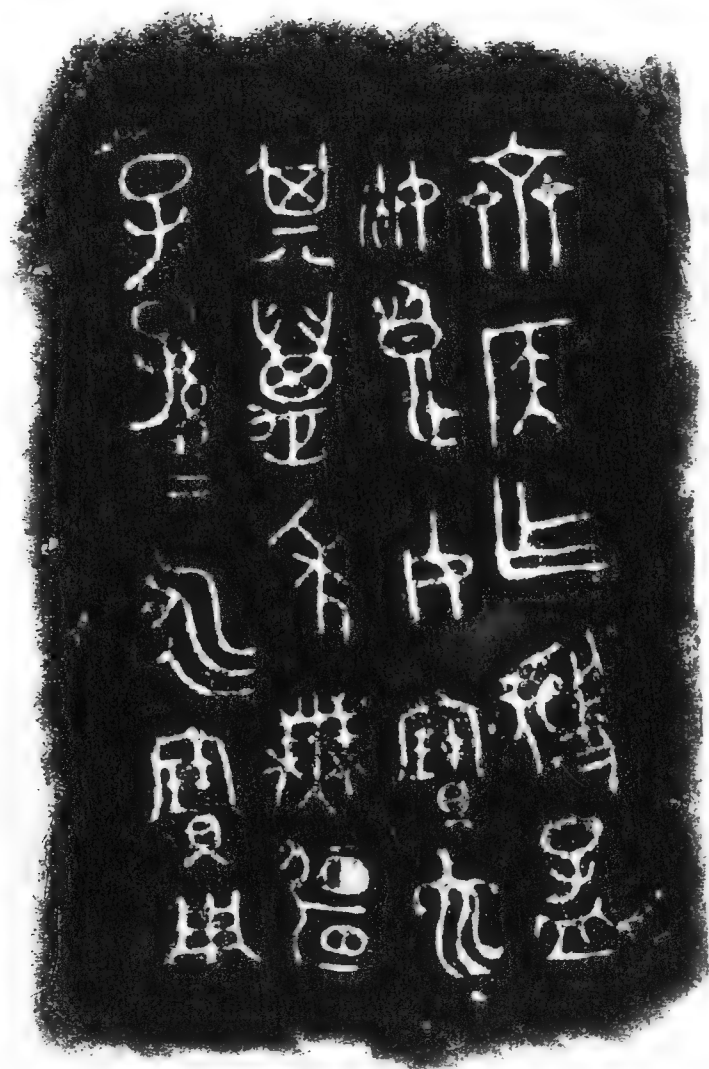 齊侯乍虢孟
姬良女寶它
其萬年無彊
子孫＝永寶用